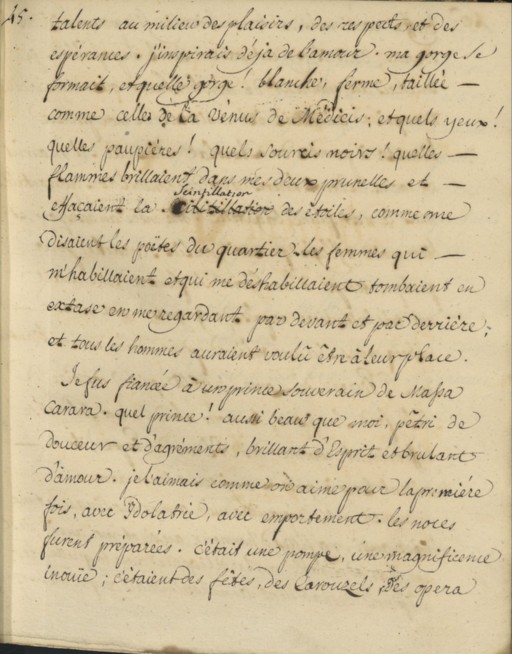 15.
talents au milieu des plaisirs, des respects et des
espérances. j'inspirais déja de l'amour. ma gorge se
formait, et quelle gorge! blanche, ferme, taillée —
comme celle de la Vénus de Médicis; et quels yeux!
quelles paupières! quels sourcis noirs! quelles —
flammes brillaient dans mes deux prunelles et —
scintillation
effaçaient la des étoiles, comme me
disaient les poëtes du quartier. les femmes qui —
m'habillaient et qui me déshabillaient tombaient en
extase en me regardant par devant et par derrière;
et tous les hommes auraient voulu être à leur place.
Je fus fiancée à un prince souverain de Massa
Carara. quel prince! aussi beau que moi, pêtri de
douceur et d'agréments, brillant d'Esprit et brulant
d'amour. je l'aimais comme on aime pour la premiére
fois, avec Idolatrie, avec emportement. les noces
furent préparées. c'était une pompe, une magnificence
inouïe; c'étaient des fêtes, des Carouzels, des opera